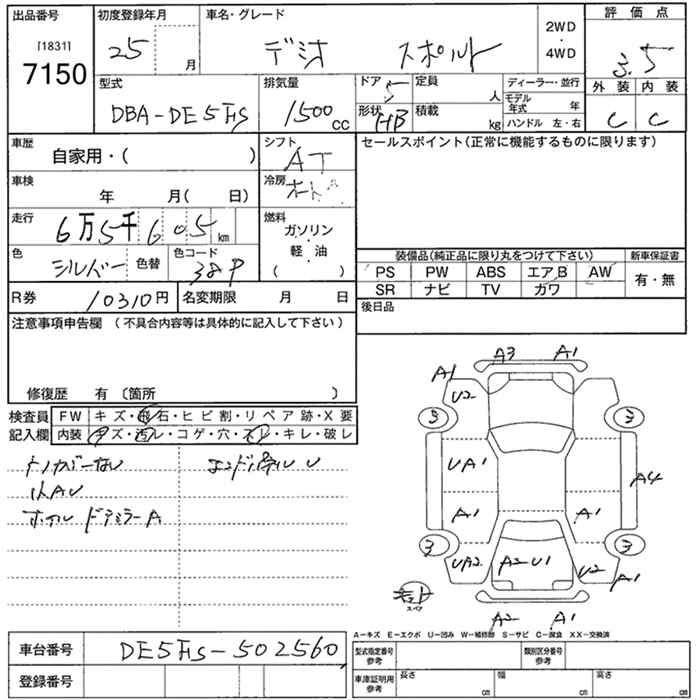 出品番号 初度登録年月 車名・グレード 2WD・4WD 評価点
[1831] 7150 25 月 デミオ スポルト 3.5
外装 内装
C C
型式 排気量 ドア 定員 人 ディーラー・並行
DBA-DE5FS 1500cc 5 モデル年式 年
形状 HB 積載 kg ハンドル 左・右
車歴 自家用・( ) シフト AT セールスポイント(正常に機能するものに限ります)
車検 年 月( 日) 冷房
走行 6万5千605km 燃料 ガソリン・軽・油 ( )
色 シルバー 色替 色コード 38P
装備品(純正品に限り丸をつけて下さい) 新車保証書
PS PW ABS エアB AW 有・無
SR ナビ TV カワ
R券 10310円 名変期限 月 日 後日品
注意事項申告欄 (不具合内容等は具体的に記入して下さい)
修復歴 有 〔箇所 〕
検査員記入欄 FW キズ・飛石・ヒビ割・リペア跡・X要
内装 キズ・汚レ・コゲ・穴・スレ・キレ・破レ
トノカバーなし
小AU
ホイル ドアミラーA
A3 A1
A1 U2
3 3
UA1 A4
A1 A1
3 3
UA2 A2 U1 U2 A1
スペア
A2 A1
A-キズ E-エクボ U-凹み W-補修跡 S-サビ C-腐食 XX-交換済
車台番号 DE5FS-502560 型式指定番号 参考 類別区分番号 参考
登録番号 車庫証明用 参考 長さ cm 幅 cm 高さ cm